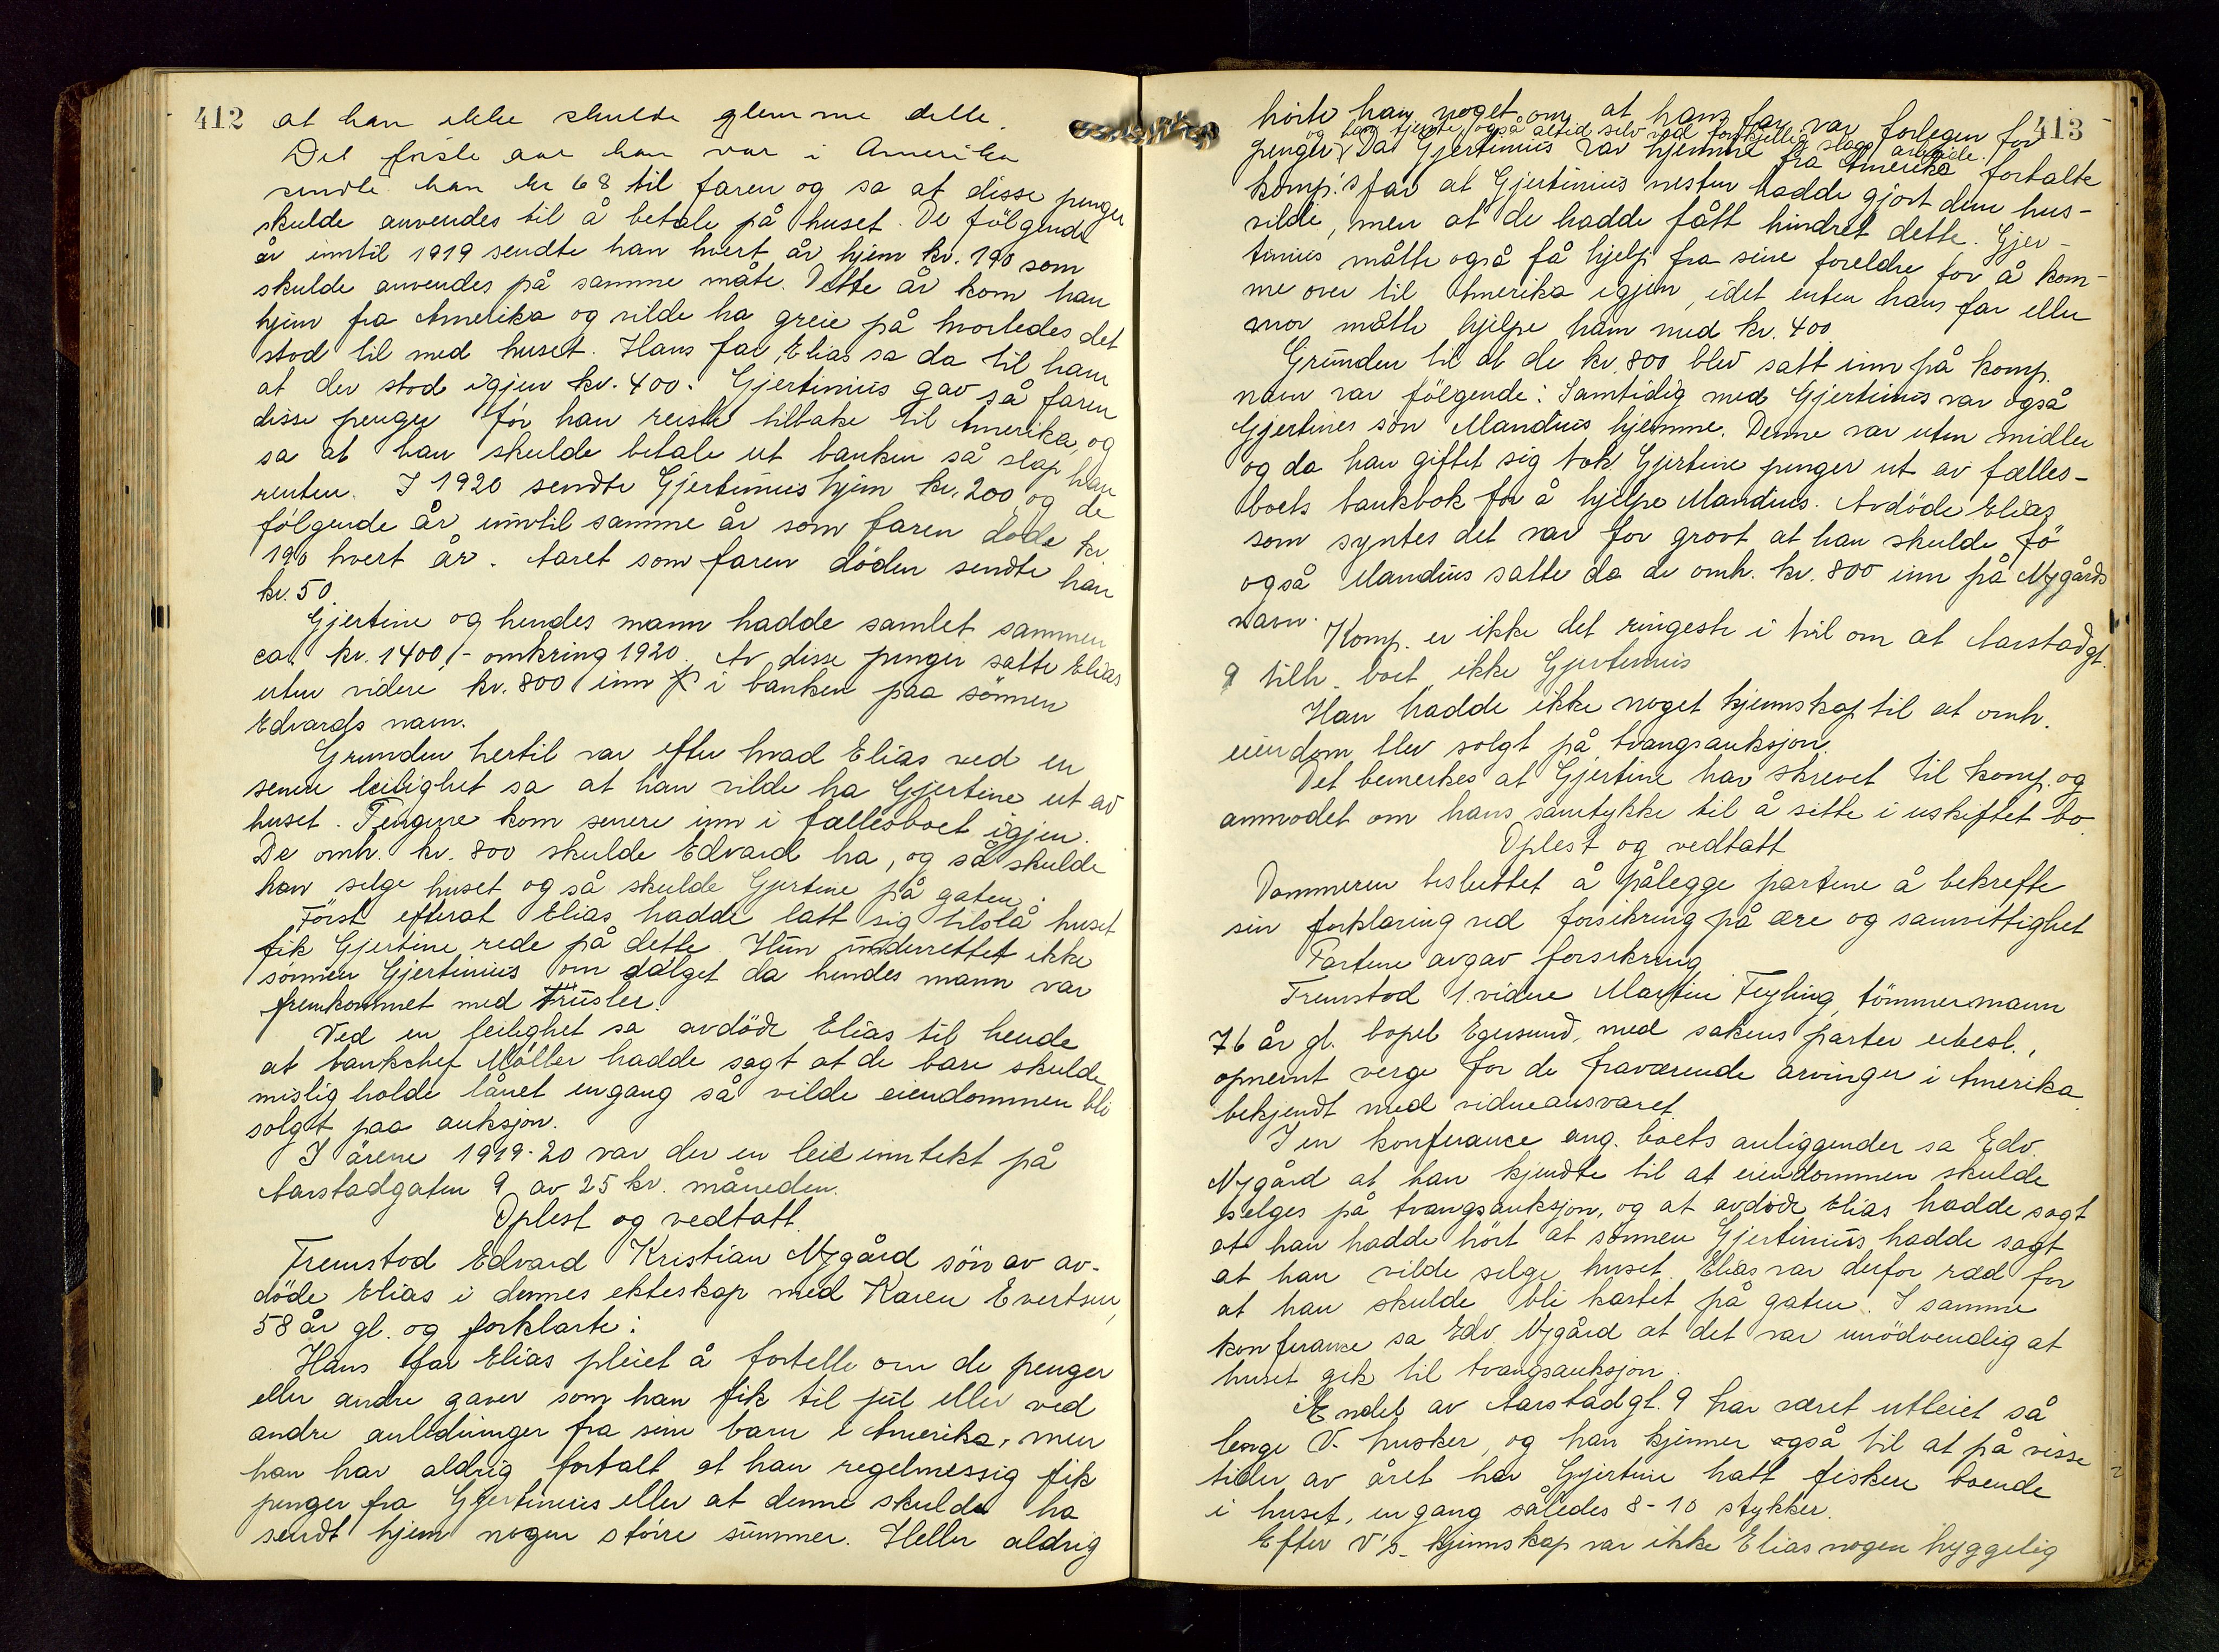 412
at han ikke skulde glemme dette.
Det første aar han var i Amerika
sendte han kr 68 til faren og sa at disse penger
skulde anvendes til å betale på huset. De fölgende
år inntil 1919 sendte han hvert år hjem kr. 190 som
skulde anvendes på samme måte. Dette år kom han
hjem fra Amerika og vilde ha greie på hvorledes det
stod til med huset. Hans far, Elias sa da til ham
at der stod igjen kr. 400. Gjertinius gav så faren
disse penger för han reiste tilbake til Amerika, og
sa at han skulde betale ut banken så slap han
renten. I 1920 sendte Gjertinius hjem kr. 200 og de
fölgende år inntil samme år som faren döde kr
190 hvert år. Aaret som faren döden sendte han
kr. 50
Gjertine og hendes mann hadde samlet sammen
ca. kr. 1400,- omkring 1920. Av disse penger satte Elias
uten videre kr. 800 inn i banken paa sönnen
Edvards navn.
Grunden hertil var efter hvad Elias ved en
senere leilighet sa at han vilde ha Gjertine ut av
huset. Pengene kom senere inn i fællesboet igjen.
De omh. kr. 800 skulde Edvard ha, og så skulde
han selge huset og så skulde Gjertine på gaten.
Först efterat Elias hadde latt sig tilslå huset
fik Gjertine rede på dette. Hun underrettet ikke
sönnen Gjertinius om salget da hendes mann var
fremkommet med trusler.
Ved en leilighet sa avdöde Elias til hende
at bankchef Möller hadde sagt at de bare skulde
mislig holde lånet engang så vilde eiendommen bli
solgt paa auksjon.
I årene 1919-20 var der en leieinntekt på
Aarstadgaten 9 av 25 kr. måneden.
Oplest og vedtatt.
Fremstod Edvard Kristian Nygård sön av av-
döde Elias i dennes ekteskap med Karen Evertsen,
58 år gl. og forklarte:
Hans far Elias pleiet å fortelle om de penger
eller andre gaver som han fik til jul eller ved
andre anledninger fra sine barn i Amerika, men
han har aldrig fortalt at han regelmessig fik
penger fra Gjertinius eller at denne skulde ha
sendt hjem nogen större summer. Heller aldrig
413
hörte han noget om at hans far var forlegen for
og han tjente også altid selv ved forskjellig slags arbeide.
penger. Da Gjertinius var hjemme fra Amerika fortalte
komp.'s far at Gjertinius nesten hadde gjort dem hus-
vilde, men at de hadde fått hindret dette. Gjer-
tinius måtte også få hjelp fra sine foreldre for å kom-
me over til Amerika igjen, idet enten hans far eller
mor måtte hjelpe ham med kr. 400
Grunden til at de kr. 800 blev satt inn på komp.
navn var fölgende: Samtidig med Gjertinius var også
Gjertines sön Mandius hjemme. Denne var uten midler
og da han giftet sig tok Gjertine penger ut av fælles-
boets bankbok for å hjelpe Mandius. Avdöde Elias
som syntes det var for grovt at han skulde fö
også Mandius satte da de omh. kr. 800 inn på Nygårds
navn.
Komp. er ikke det ringeste i tvil om at Aarstadgt.
9 tilh. boet ikke Gjertinius
Han hadde ikke noget kjennskap til at omh.
eiendom blev solgt på tvangsauksjon.
Det bemerkes at Gjertine har skrevet til komp. og
anmodet om hans samtykke til å sitte i uskiftet bo
Oplest og vedtatt
Dommeren besluttet å pålegge partene å bekrefte
sin forklaring ved forsikring på ære og samvittighet
Partene avgav forsikring
Fremstod 1. vidne Martin Feyling, tömmermann
76 år gl. bopel Egersund, med sakens parter ubesl.,
opnevnt verge for de fraværende arvinger i Amerika
bekjendt med vidneansvaret.
I en konferance ang. boets anliggender sa Edv.
Nygård at han kjendte til at eiendommen skulde
selges på tvangsauksjon, og at avdöde Elias hadde sagt
at han hadde hört at sönnen Gjertinius hadde sagt
at han vilde selge huset. Elias var derfor ræd for
at han skulde bli kastet på gaten. I samme
konferanse sa Edv. Nygård at det var unödvendig at
huset gik til tvangsauksjon.
Endel av Aarstadgt. 9 har været utleiet så
lenge V. husker, og han kjenner også til at på visse
tider av året har Gjertine hatt fiskere boende
i huset, engang således 8-10 stykker.
Efter V's. kjennskap var ikke Elias nogen hyggelig